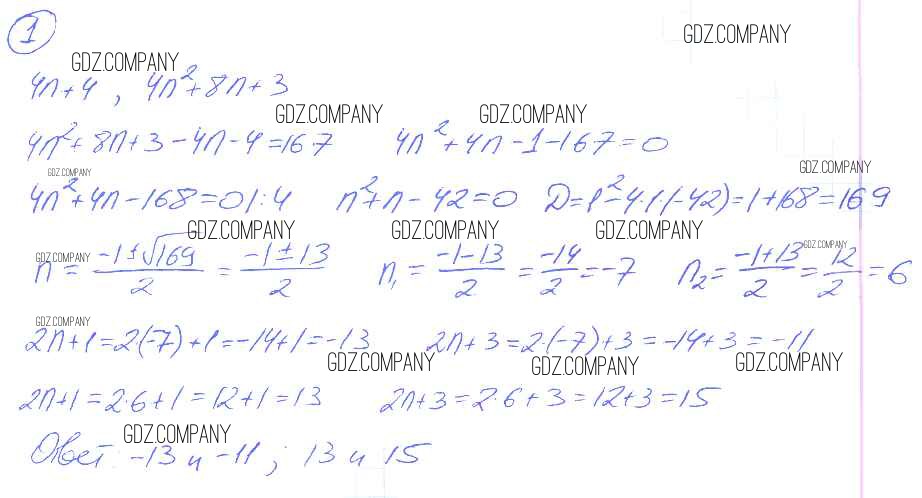 1
GDZ.COMPANY
GDZ.COMPANY
4n+4, 4n²+8n+3
GDZ.COMPANY GDZ.COMPANY
4n²+8n+3-4n-4=167 4n²+4n-1-167=0
GDZ.COMPANY GDZ.COMPANY
4n²+4n-168=0|:4 n²+n-42=0 D=1²-4·1·(-42)=1+168=169
GDZ.COMPANY GDZ.COMPANY GDZ.COMPANY
GDZ.COMPANY GDZ.COMPANY
n = (-1±√169)/2 = (-1±13)/2 n₁ = (-1-13)/2 = -14/2 = -7 n₂ = (-1+13)/2 = 12/2 = 6
GDZ.COMPANY
2n+1=2·(-7)+1=-14+1=-13 2n+3=2·(-7)+3=-14+3=-11
GDZ.COMPANY GDZ.COMPANY GDZ.COMPANY
2n+1=2·6+1=12+1=13 2n+3=2·6+3=12+3=15
GDZ.COMPANY
Ответ: -13 и -11; 13 и 15